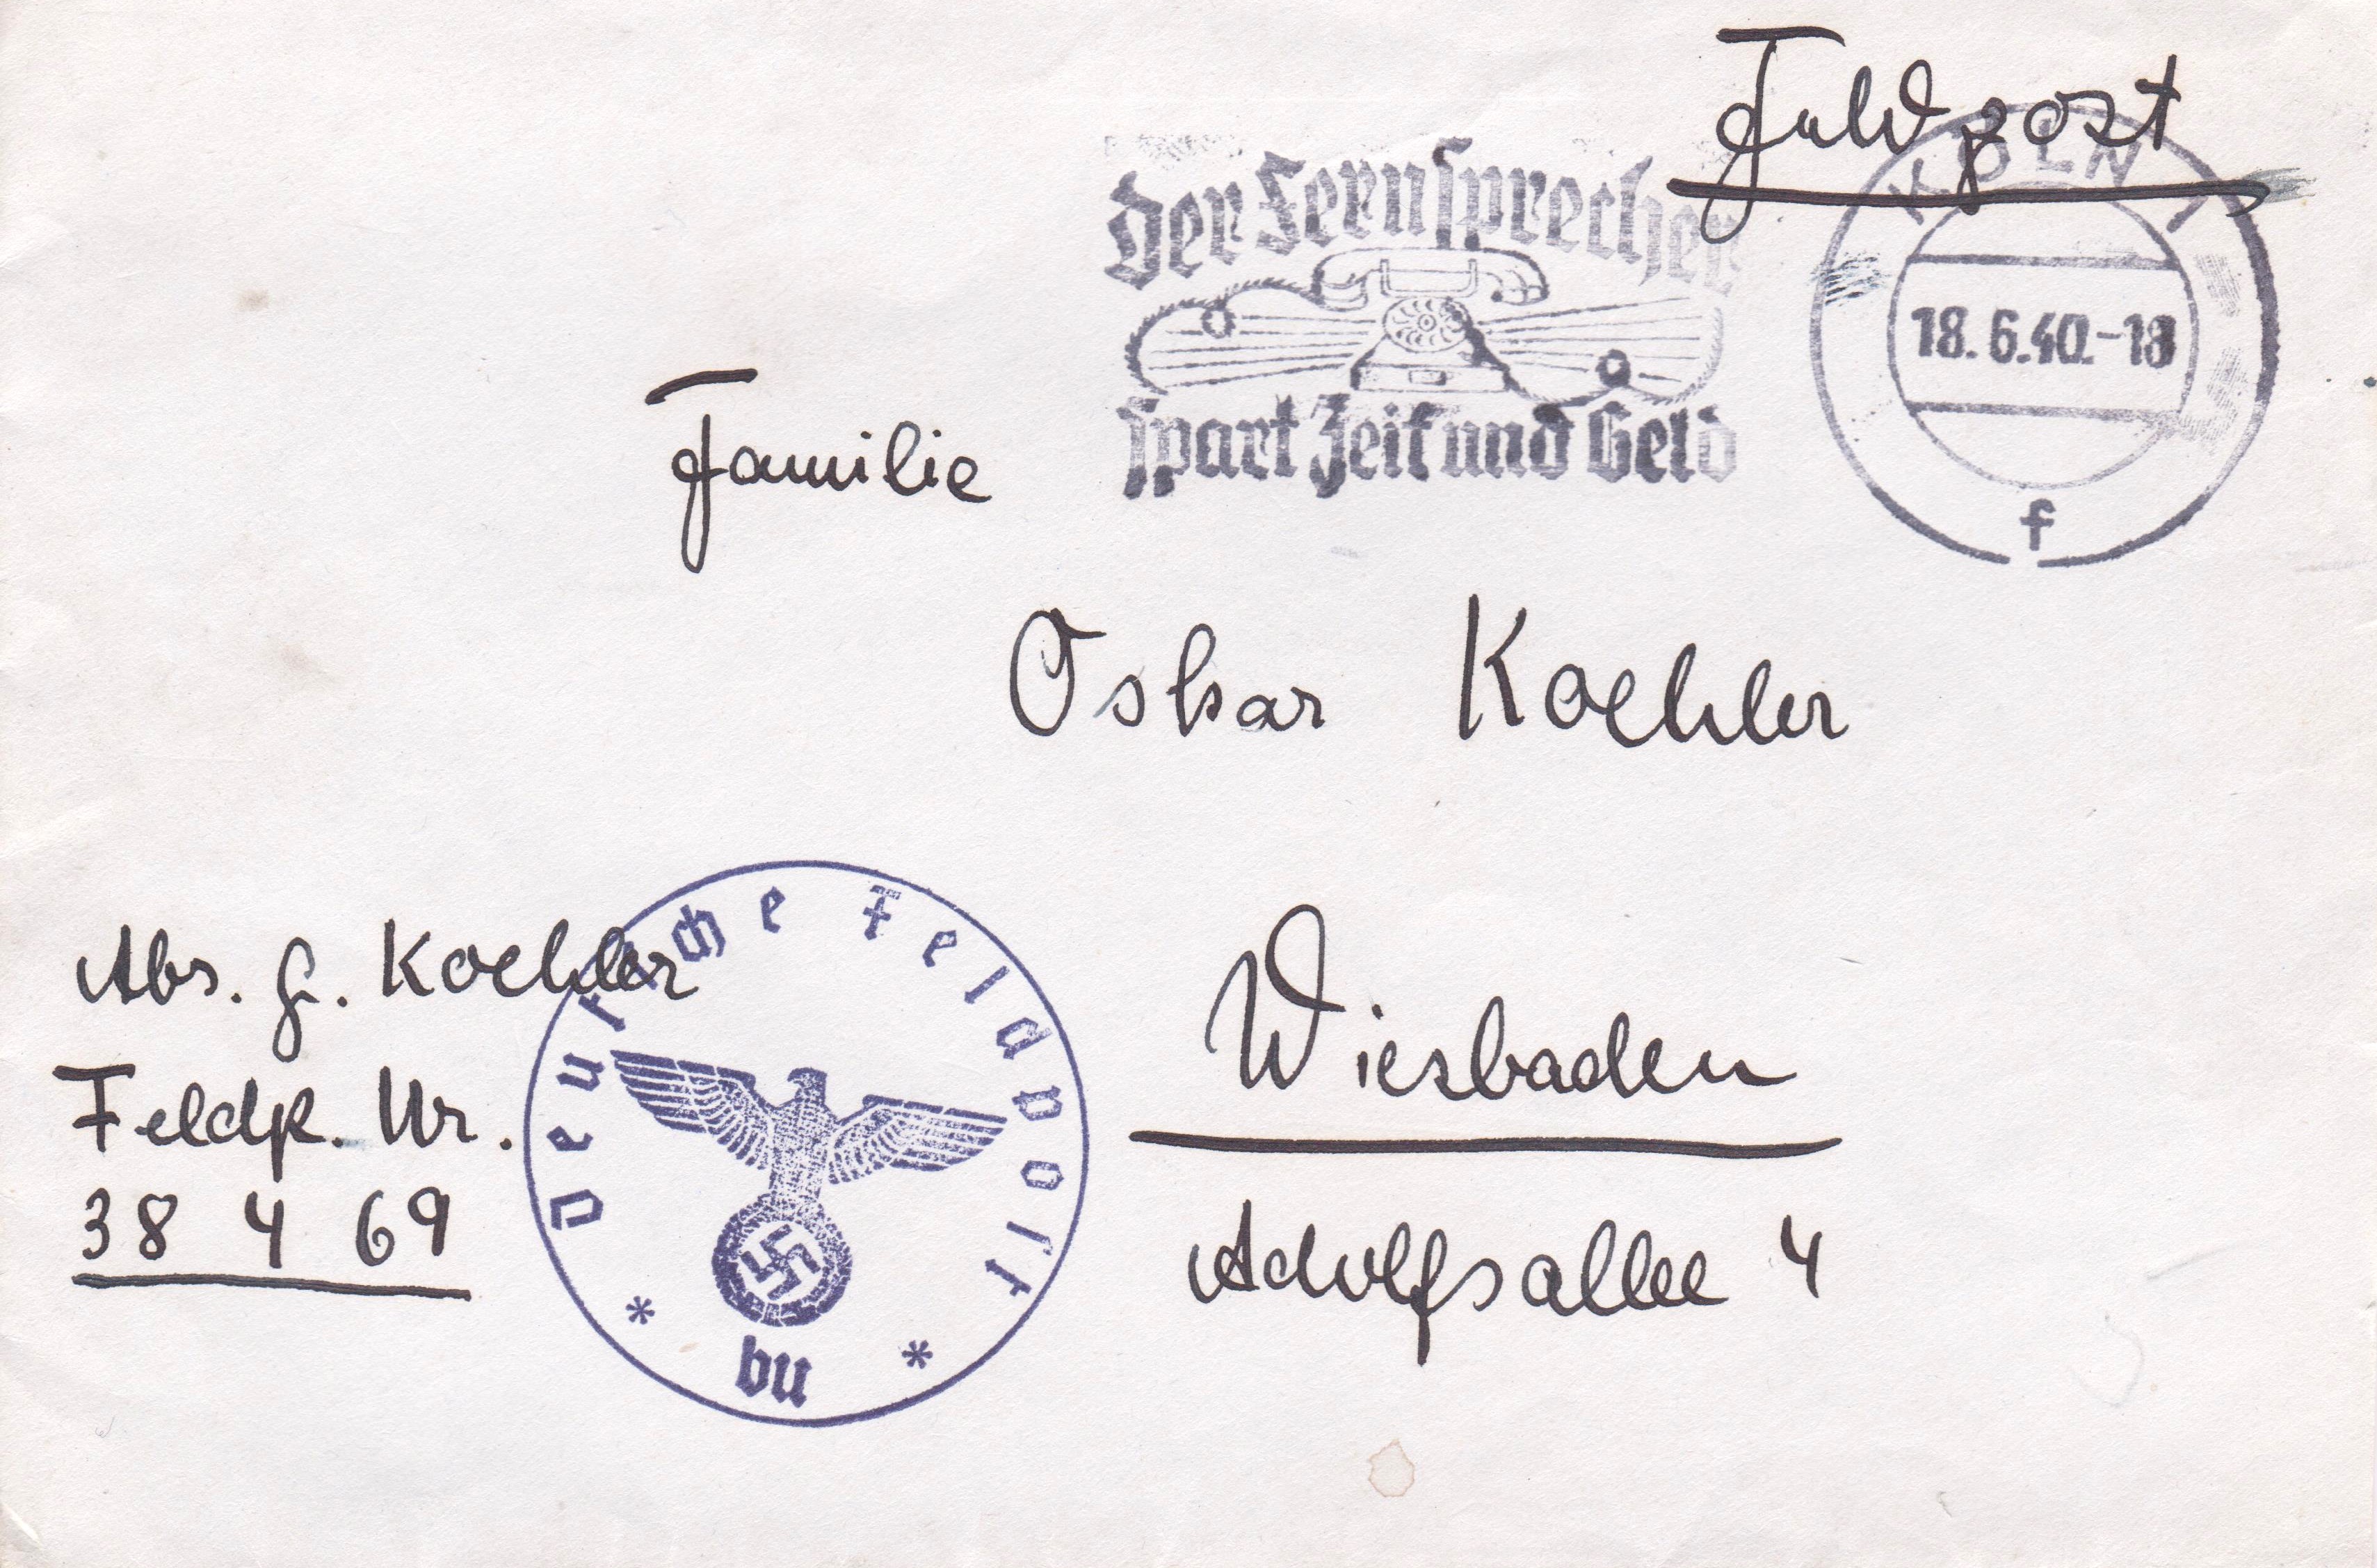 Feldpost
Der Fernsprecher
spart Zeit und Geld
KÖLN 1
18.6.40.-18
f
Familie
Oskar Koehler
Wiesbaden
Adolfsallee 4
Abs. G. Koehler
Feldp. Nr.
38 4 69
Deutsche Feldpost
* bu *